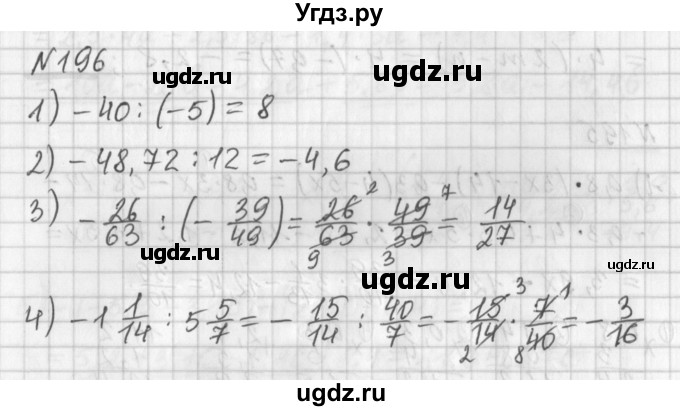 Угдз.ру
N196
ugdz.ru
ugdz.ru
1) - 40 : (-5) = 8
2) - 48,72 : 12 = - 4,6
ugdz.ru
ugdz.ru
3) - 26/63 : (- 39/49) = 26/63 · 49/39 = 14/27
2 7
9 3
ugdz.ru
ugdz.ru
ugdz.ru
4) - 1 1/14 : 5 5/7 = - 15/14 : 40/7 = - 15/14 · 7/40 = - 3/16
3 1
2 8
ugdz.ru
ugdz.ru
ugdz.ru